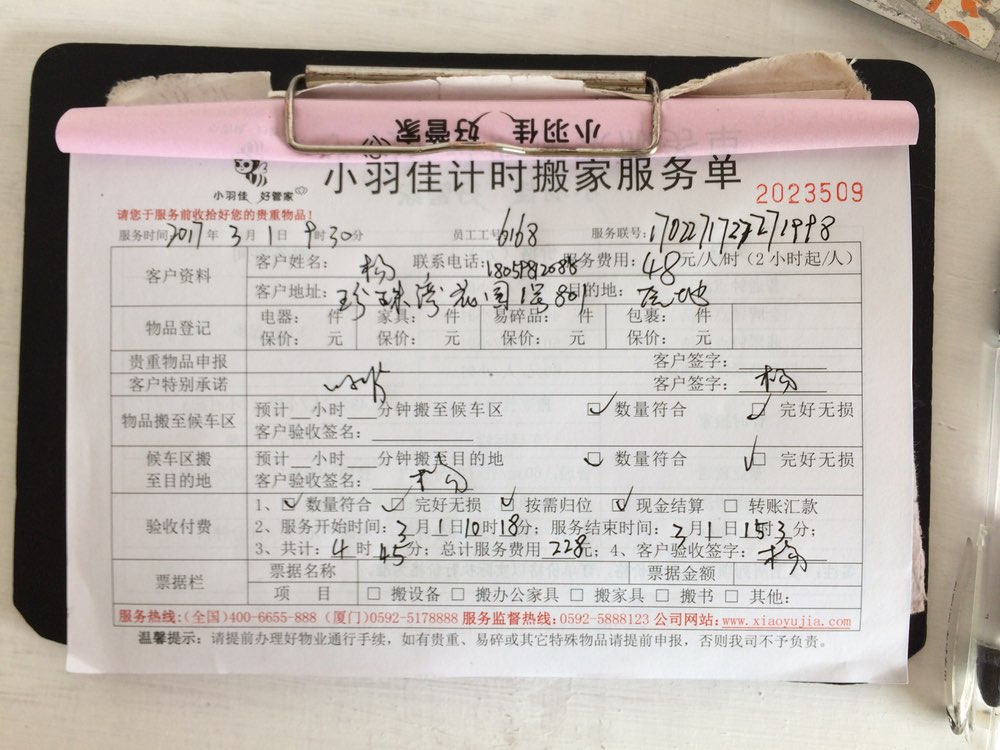 小羽佳 好管家
小羽佳 好管家
小羽佳计时搬家服务单
2023509
请您于服务前收拾好您的贵重物品!
服务时间: 2017 年 3 月 1 日 9 时 30 分 员工工号: 6168 服务联号:
客户资料 客户姓名: 杨 联系电话: 服务费用: 48 元/人/时 (2 小时起/人)
客户地址: 珍珠湾花园 801 目的地:
物品登记 电器: 件 家具: 件 易碎品: 件 包裹: 件
保价: 元 保价: 元 保价: 元 保价: 元
贵重物品申报 客户签字:
客户特别承诺 客户签字: 杨
物品搬至候车区 预计 小时 分钟搬至候车区 数量符合 完好无损
客户验收签名:
候车区搬至目的地 预计 小时 分钟搬至目的地 数量符合 完好无损
客户验收签名: 杨
验收付费 1、 数量符合 完好无损 按需归位 现金结算 转账汇款
2、服务开始时间: 3 月 1 日 10 时 18 分; 服务结束时间: 3 月 1 日 15 时 3 分;
3、共计: 4 时 45 分; 总计服务费用 228 元; 4、客户验收签字: 杨
票据栏 票据名称 票据金额
项 目 搬设备 搬办公家具 搬家具 搬书 其他:
服务热线:(全国)400-6655-888 (厦门)0592-5178888 服务监督热线:0592-5888123 公司网站:www.xiaoyujia.com
温馨提示: 请提前办理好物业通行手续, 如有贵重、易碎或其它特殊物品请提前申报, 否则我司不予负责。